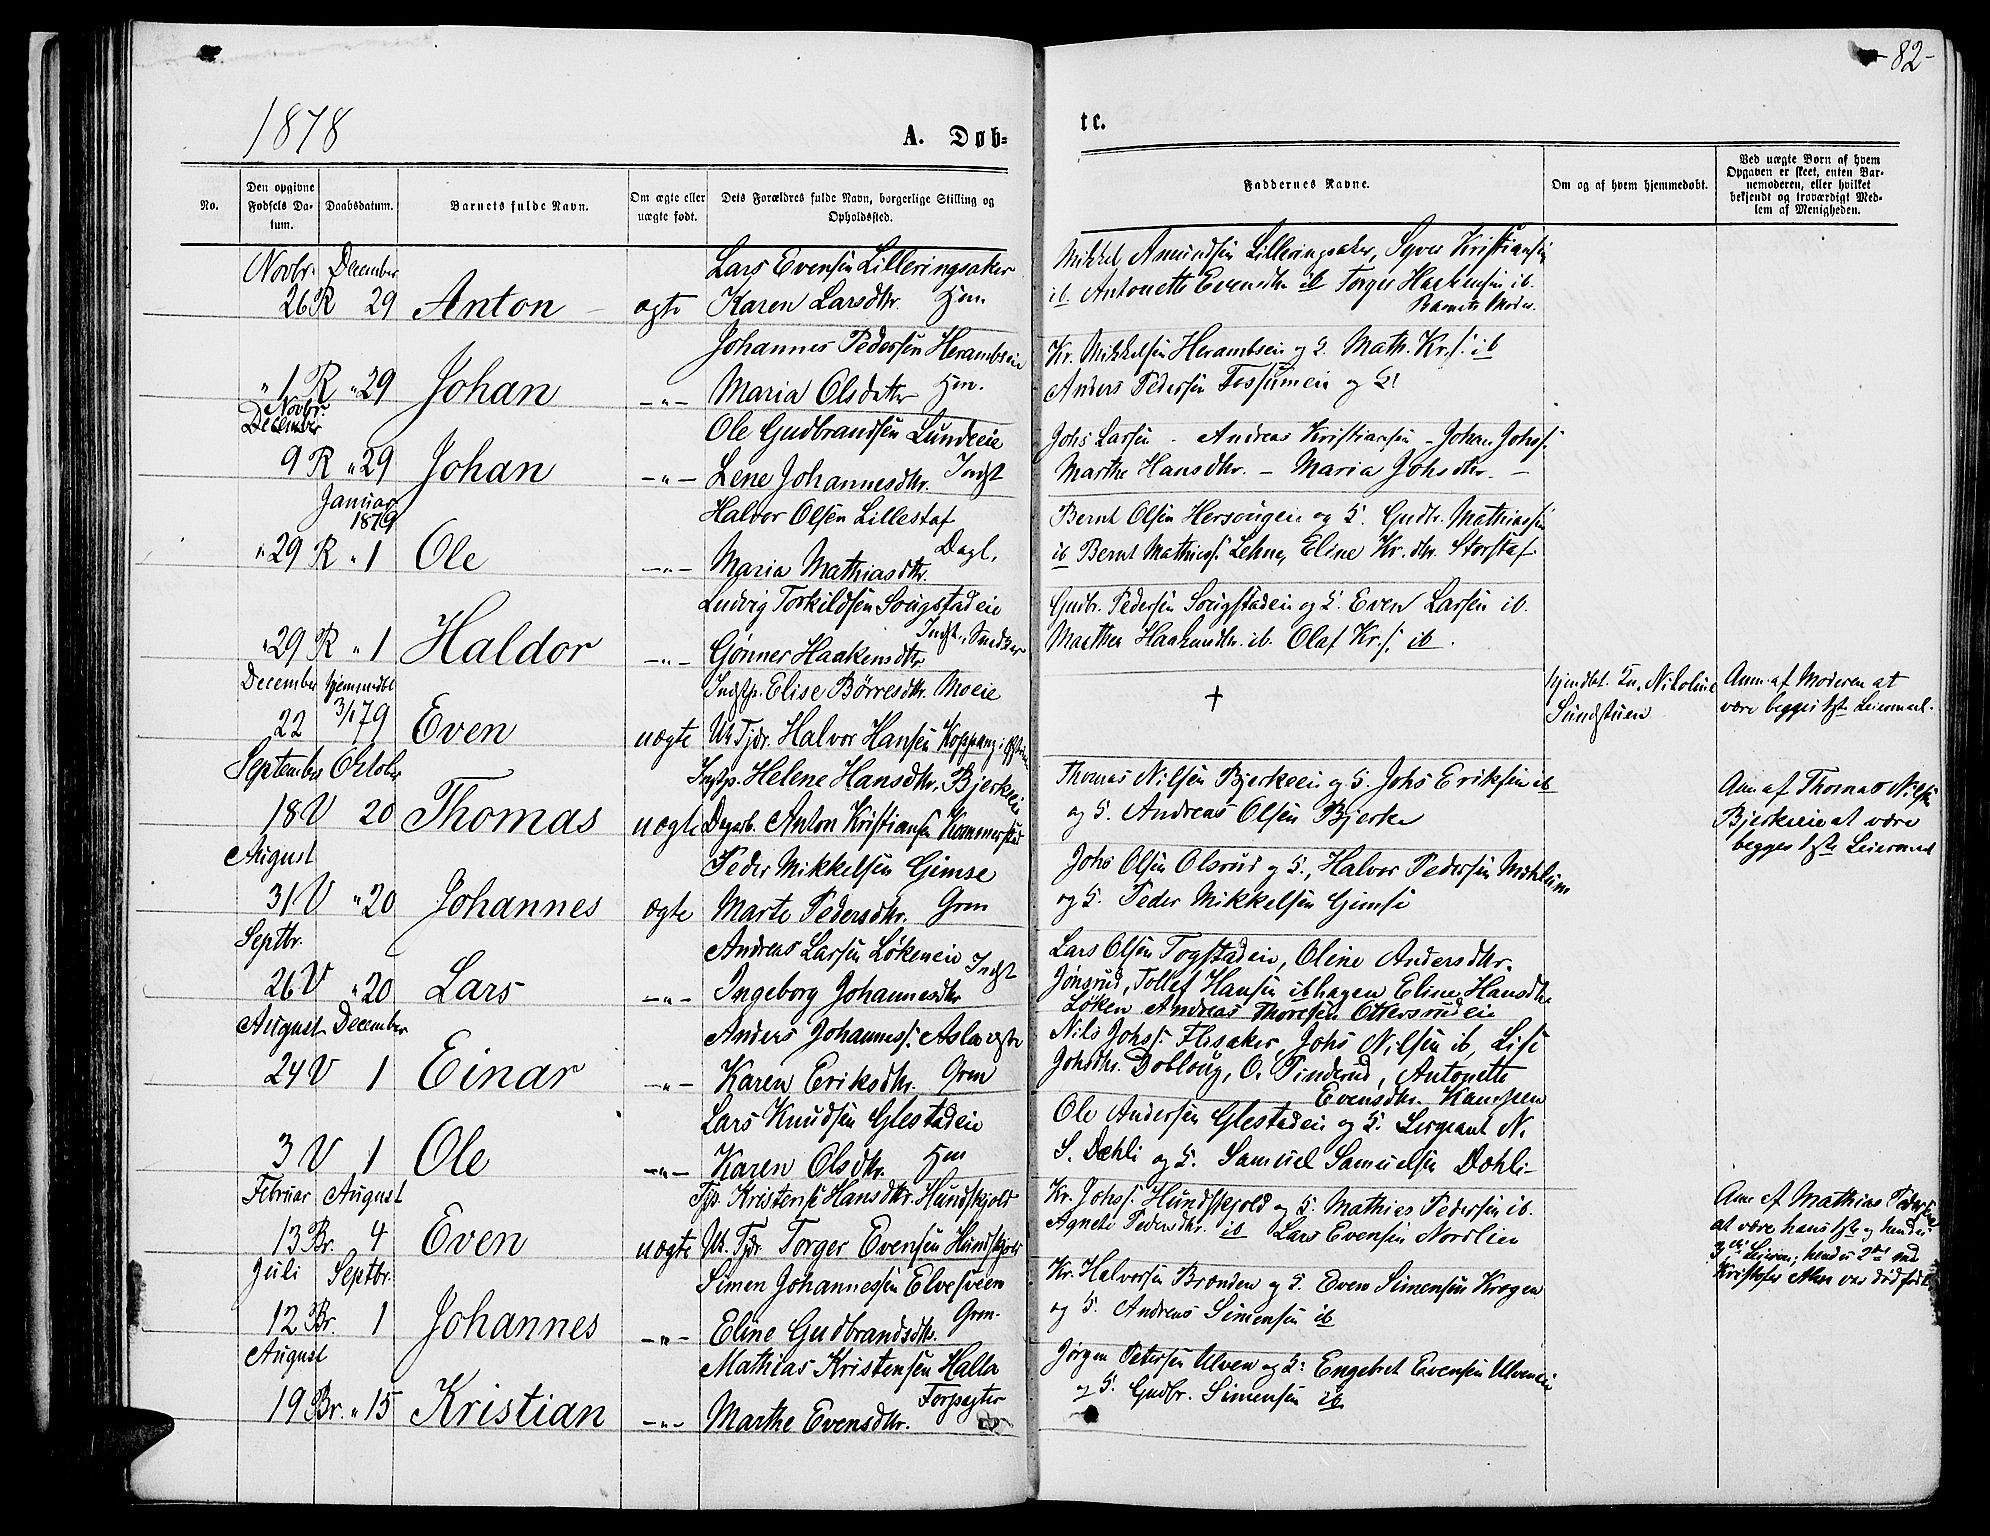 1878
A. Døb-
No.
Den opgivne Fødsels Da-tum.
Daabsdatum.
Barnets fulde Navn.
Om ægte eller uægte født.
Dets Forældres fulde Navn, borgerlige Stilling og Opholdssted.
Novbr. December
26 R 29 Anton ægte
Lars Evensen Lilleringsaker
Karen Larsdtr.
Johannes Pedersen
" 1 R " 29 Johan -"-
Maria Olsdatter
Novbr.
December
9 R " 29 Johan -"-
Ole Gudbrandsen Lundeeie
Lene Johannesdtr. Indst
Januar
1879
" 29 R " 1 Ole -"-
Halvor Olsen Lillestaf
Dagl.
Maria Mathiasdtr.
" 29 R " 1 Haldor -"-
Ludvig Torkildsen Sougstadeie
Indst, Snedker
Gønner Haakensdtr
December hjemmedbt
22 3/1 79 Even uægte
Indstp. Elise Børresdtr. Moeie
Halvor Hansen Koppang i
September October
18 V 20 Thomas uægte
Helene Hansdtr. Bjerkeeie
Anton Kristiansen
August
31 V " 20 Johannes ægte
Peder Mikkelsen Gimse
Marte Pedersdtr.
Septbr.
26 V " 20 Lars -"-
Andreas Larsen Løkeneie
Indst
Ingeborg Johannesdtr
August December
24 V 1 Einar -"-
Anders Johanness.
Karen Eriksdtr.
3 V 1 Ole -"-
Lars Knudsen Glestadeie
Karen Olsdtr.
Februar August
13 Br. 4 Even uægte
Hansdtr. Hundskjold
Torger Evensen Hundskjold
Juli Septbr.
12 Br. 1 Johannes -"-
Simen Johannessen Elvesveen
Eline Gudbrandsdtr.
August
19 Br. " 15 Kristian -"-
Mathias Kristensen Halla
Forpagter
Marthe Evensdtr.
te.
- 82 -
Faddernes Navne.
Om og af hvem hjemmedøbt.
Ved uægte Børn af hvem Opgaven er skeet, enten Bar-nemoderen, eller hvilket bekjendt og troværdigt Med-lem af Menigheden.
Mikkel Amundsen Lilleringsaker, Syver Kristiansen
ib. Antonette Evensdtr ib Torger Haakensen ib.
Barnets Moder.
Kr. Mikkelsen
Anders Pedersen Fossumeie
Johs Larsen - Andreas Kristiansen - Johan Johs.
Marthe Hansdtr. - Maria Johsdtr. -
Bernt Olsen Hersougeie og H. Gudbr. Mathiassen
ib Bernt Mathiass. Lehne, Eline Kr.dtr. Storstaf
Gudbr. Pedersen Sougstadeie og H. Even Larsen ib.
Marthea Haakensdtr. ib. Olaf Kr.s. ib.
†
Nikoline
Sundstuen
Anm. af Moderen at
være begges 1ste Leiermaal.
Thomas Nilsen Bjerkeeie og H. Johs Eriksen ib
og H. Andreas Olsen Bjerke
Anm af Thomas Nilsen
Bjerkeeie at være
begges 1ste Leiermaal
Johs Olsen Olsrud og H., Halvor Pedersen Mæhlum
og H. Peder Mikkelsen Gimse
Lars Olsen Togstadeie, Oline Andersdtr.
Jønsrud, Tollef Hansen ibhagen Eline Hansdtr
Løken Andreas Thoresen Ottersrudeie
Nils Johs. Flisaker, Johs Nilsen ib, Lise
Johsdtr. Dobloug, O. Tinderud, Antonette
Evensdtr. Kampen
Ole Andersen Glestadeie og H. Sergeant N.
S. Dæhli og H. Samuel Samuelsen Dæhli-
Kr. Johs. Hundskjold og H. Mathies Pedersen ib.
Agnete Pedersdtr. ib Lars Evensen Nordlien
Anm af Mathias Pedersen
at være hans 1ste og hendes
3die Leierm; hendes 2det med
var dødfødt
Kr. Halvorsen Brænden og H. Even Simensen Krogen
og H. Andreas Simensen ib
Jørgen Petersen Ulven og H. Engebret Evensen Ulveneie
og H. Gudbr. Simensen ib.